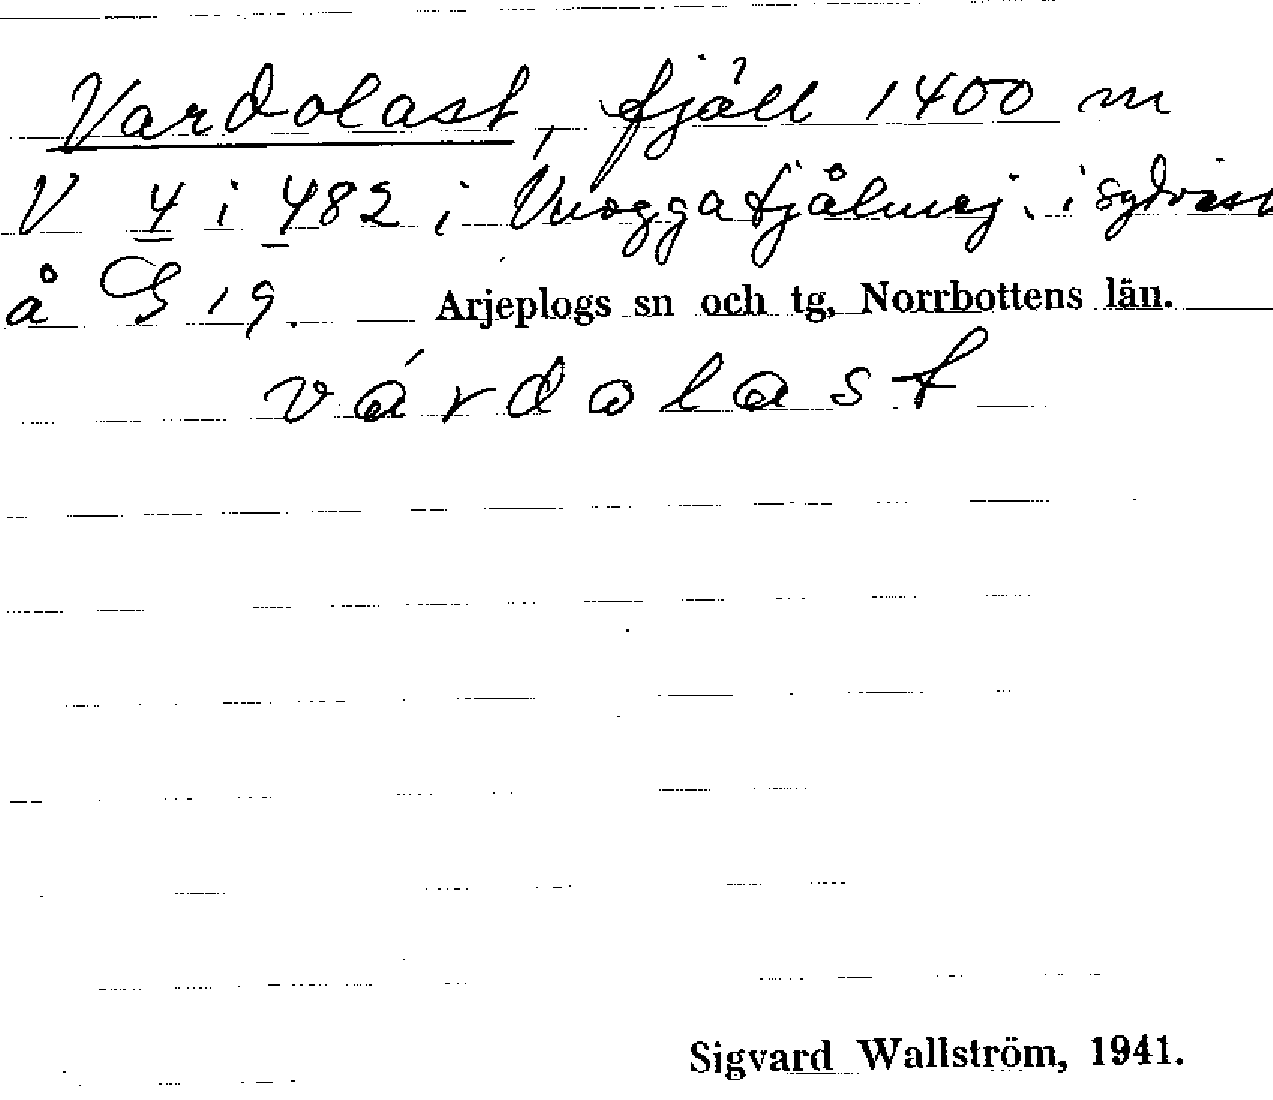 Vardolast, fjäll 1400 m
V 4 i 482 i Vuoggatjålmej. i sydväst
å G 19. Arjeplogs sn och tg, Norrbottens län.
várdolast
Sigvard Wallström, 1941.